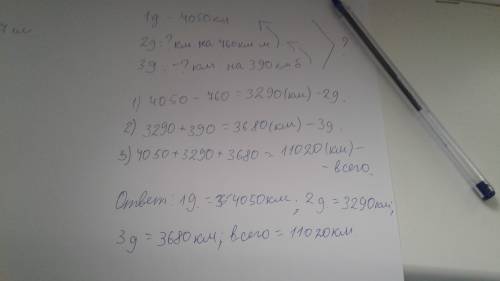 1д - 4050 км
2д - ? км на 760км м
3д - ? км на 390 км б ?
1) 4050 - 760 = 3290 (км) - 2д.
2) 3290 + 390 = 3680 (км) - 3д.
3) 4050 + 3290 + 3680 = 11020 (км) -
- всего.
Ответ: 1д = 4050км; 2д = 3290км;
3д = 3680км; всего = 11020км